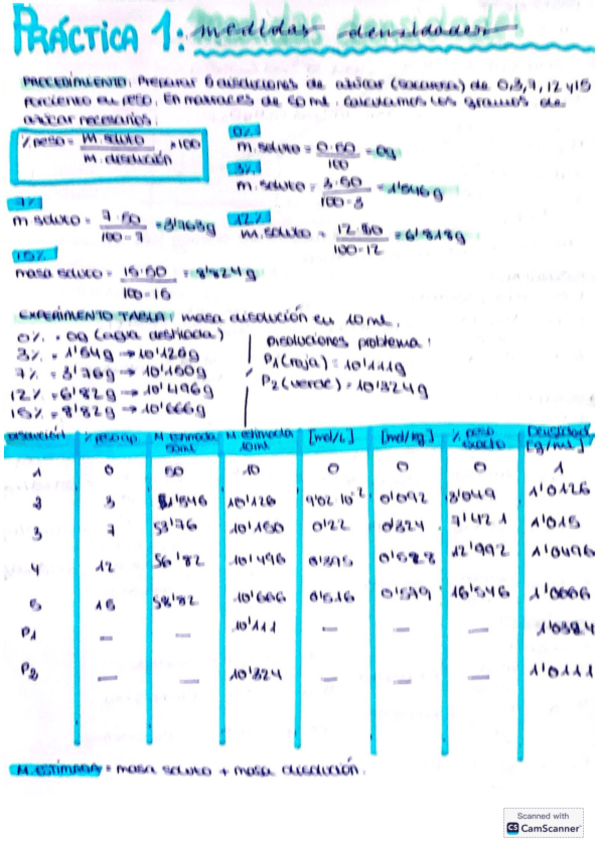 PRÁCTICA 1: medidas densidades
PROCEDIMIENTO: Preparar 5 disoluciones de azúcar (sacarosa) de 0,3,7,12 y 15
porciento en peso. En matraces de 50 ml. Calculamos los gramos de
azúcar necesarios:
% peso = m. soluto / m. disolución × 100
0%
m. soluto = 0·50 / 100 = 0g
3%
m. soluto = 3·50 / 100-3 = 1'546 g
7%
m soluto = 7·50 / 100-7 = 3'763g
12%
m. soluto = 12·50 / 100-12 = 6'818g
15%
masa soluto = 15·50 / 100-15 = 8'824 g
EXPERIMENTO TABLA: masa disolución en 10 ml.
0% = 0g (agua destilada)
3% = 1'54g → 10'126g
7% = 3'76g → 10'150g
12% = 6'82g → 10'496g
15% = 8'82g → 10'666g
Disoluciones problema:
P1 (roja) = 10'111g
P2 (verde) = 10'324g
DISOLUCIÓN % peso ap M estimada 50ml M estimada 10ml [mol/L] [mol/kg] % peso exacto Densidad [g/mL]
1 0 50 10 0 0 0 1
2 3 51'546 10'126 9'02 10⁻² 0'092 3'049 1'0126
3 7 53'76 10'150 0'22 0'324 7'421 1'015
4 12 56'82 10'496 0'395 0'588 12'992 1'0496
5 15 58'82 10'666 0'516 0'579 16'546 1'0666
P1 — — 10'111 — — — 1'0324
P2 — — 10'324 — — — 1'0111
M. ESTIMADA = masa soluto + masa disolución.
Scanned with
CS CamScanner